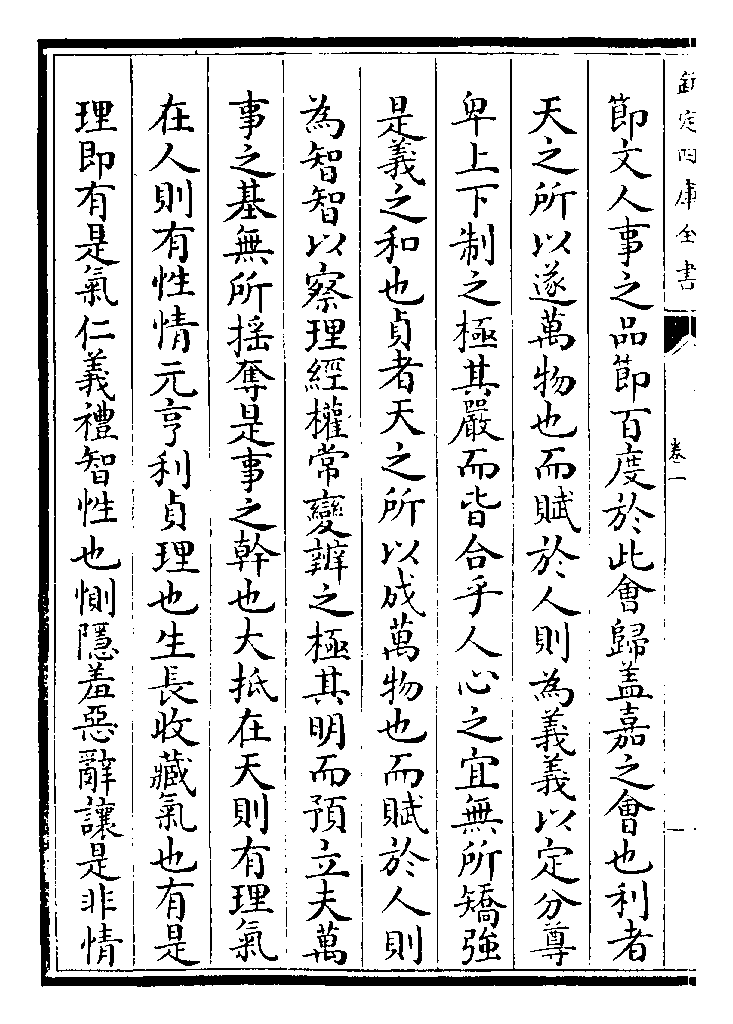 欽定四庫全書
卷一
一
節文人事之品節百度於此會歸盖嘉之會也利者
天之所以遂萬物也而賦於人則為義義以定分尊
卑上下制之極其嚴而皆合乎人心之宜無所矯強
是義之和也貞者天之所以成萬物也而賦於人則
為智智以察理經權常變辨之極其明而預立夫萬
事之基無所揺奪是事之幹也大抵在天則有理氣
在人則有性情元亨利貞理也生長收藏氣也有是
理即有是氣仁義禮智性也惻隱羞惡辭讓是非情